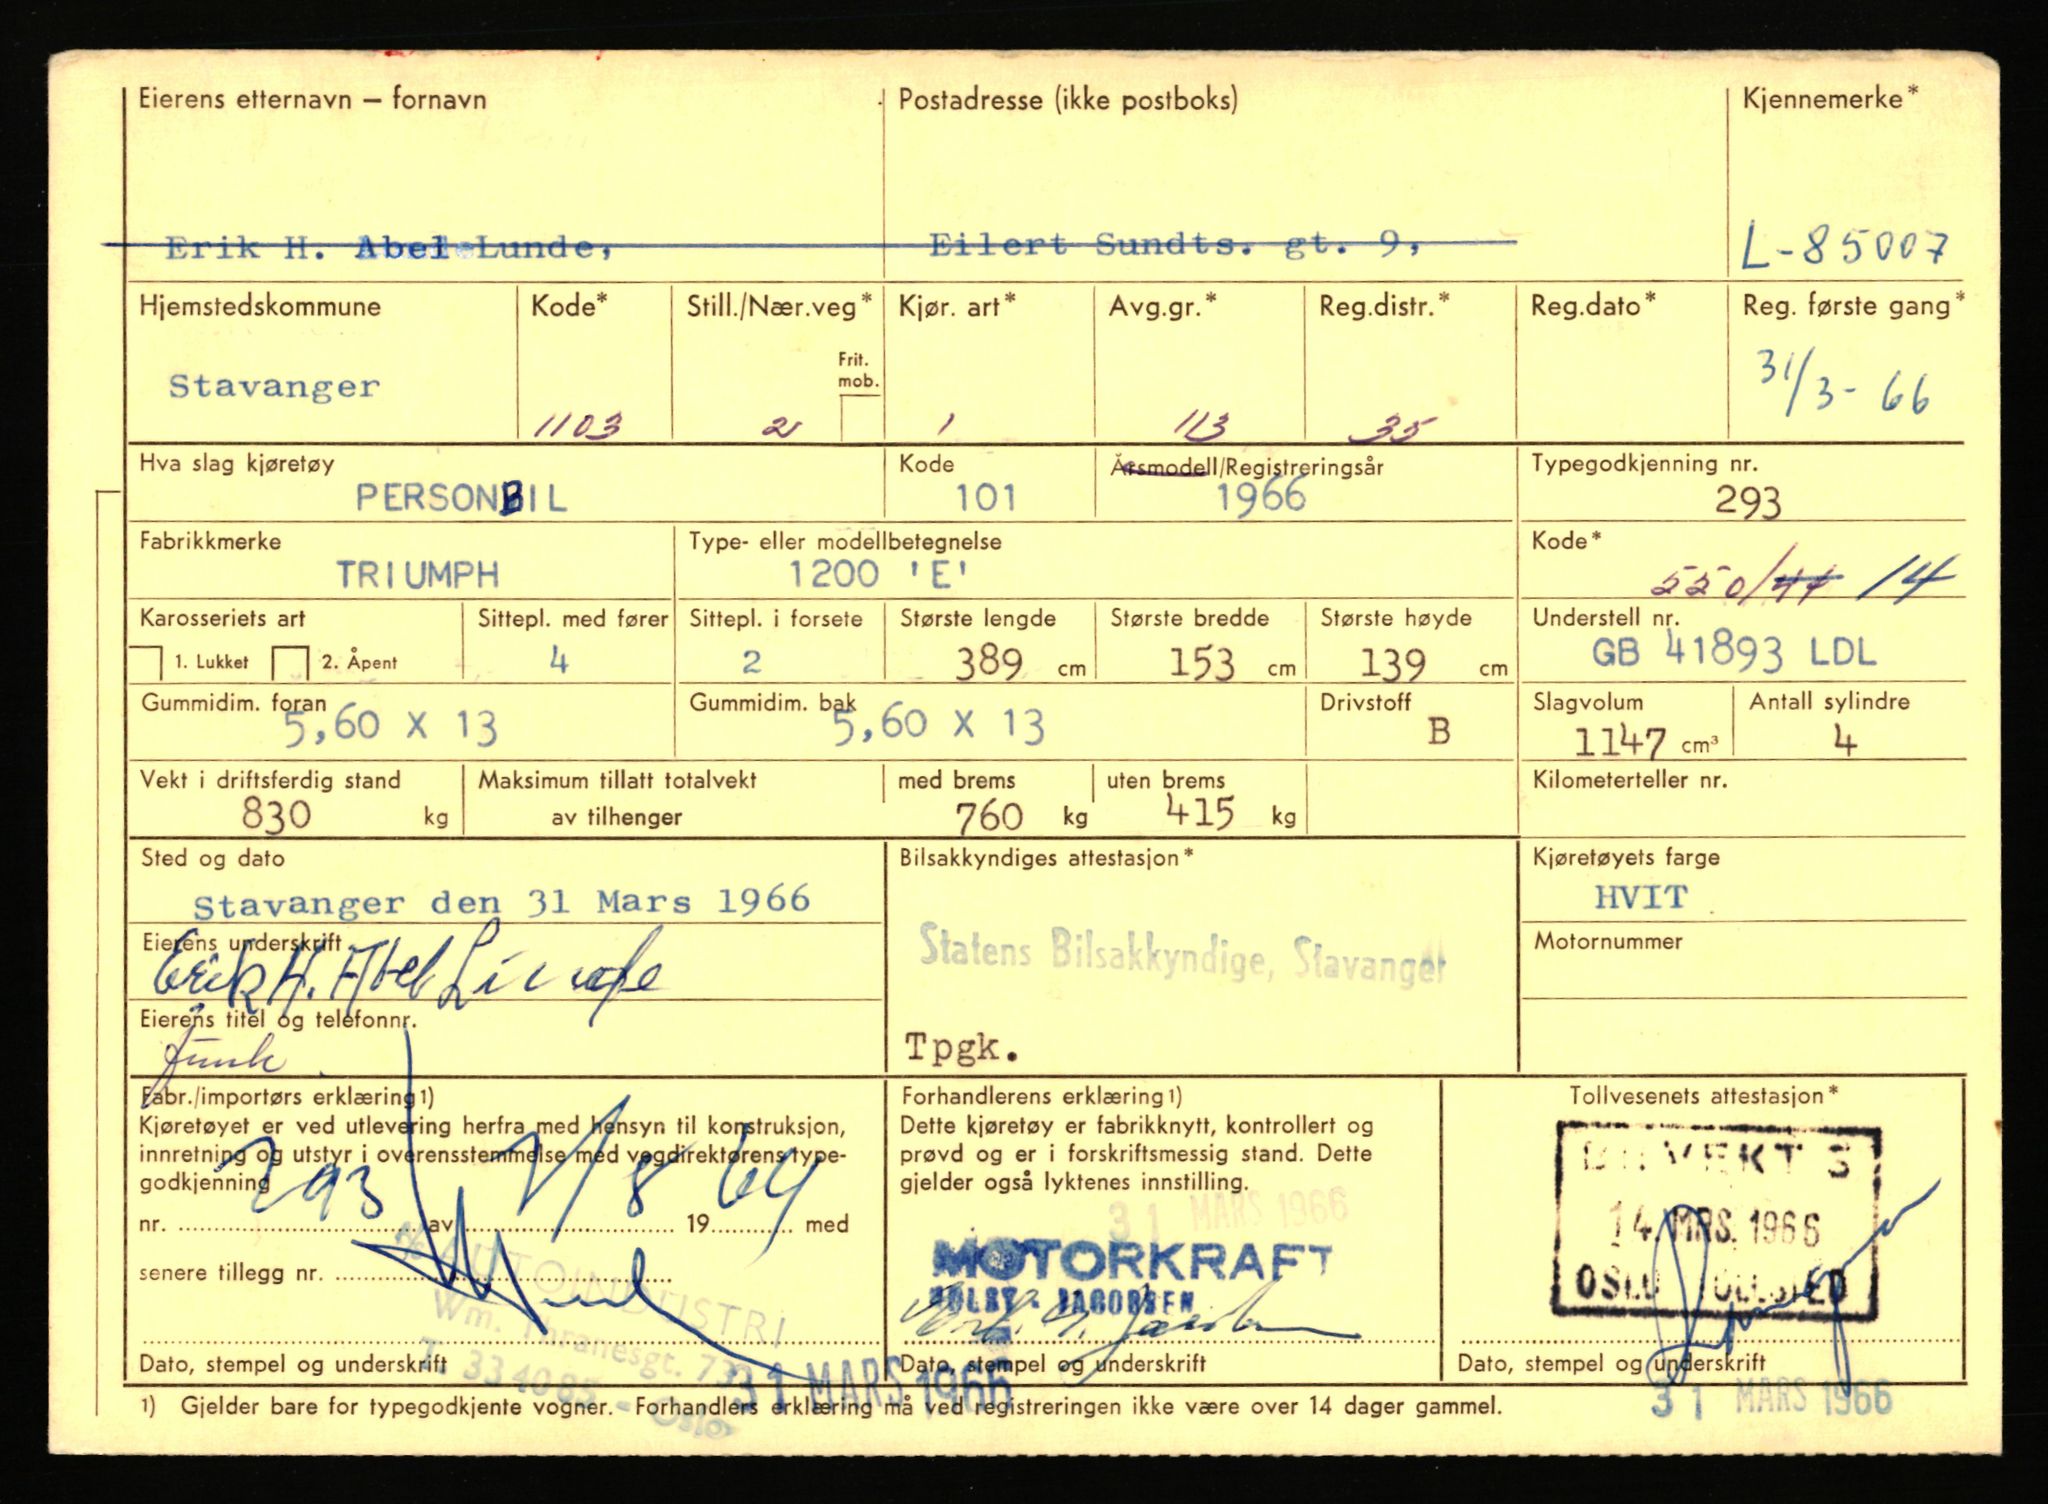 Eierens etternavn – fornavn
Postadresse (ikke postboks)
Kjennemerke*
Erik H. Abel Lunde,
Eilert Sundts. gt. 9,
L-85007
Hjemstedskommune
Kode*
Still./Nær.veg*
Kjør. art*
Avg.gr.*
Reg.distr.*
Reg.dato*
Reg. første gang*
Frit. mob.
Stavanger
1103
2
1
113
35
31/3-66
Hva slag kjøretøy
Kode
Årsmodell/Registreringsår
Typegodkjenning nr.
PERSONBIL
101
1966
293
Fabrikkmerke
Type- eller modellbetegnelse
Kode*
TRIUMPH
1200 'E'
550/44 14
Karosseriets art
Sittepl. med fører
Sittepl. i forsete
Største lengde
Største bredde
Største høyde
Understell nr.
1. Lukket
2. Åpent
4
2
389 cm
153 cm
139 cm
GB 41893 LDL
Gummidim. foran
Gummidim. bak
Drivstoff
Slagvolum
Antall sylindre
5,60 X 13
5,60 X 13
B
1147 cm³
4
Vekt i driftsferdig stand
Maksimum tillatt totalvekt
av tilhenger
med brems
uten brems
Kilometerteller nr.
830 kg
760 kg
415 kg
Sted og dato
Bilsakkyndiges attestasjon*
Kjøretøyets farge
Stavanger den 31 Mars 1966
HVIT
Eierens underskrift
Erik H. Abel Lunde
Statens Bilsakkyndige, Stavanger
Motornummer
Eierens titel og telefonnr.
Tpgk.
Fabr./importørs erklæring 1)
Kjøretøyet er ved utlevering herfra med hensyn til konstruksjon,
innretning og utstyr i overensstemmelse med vegdirektørens type-
godkjenning
nr. 293 av 7/8 1964 med
senere tillegg nr.
A/S AUTOINDUSTRI
Wm. Thranesgt. 73
T. 334085 - Oslo
31 MARS 1966
Dato, stempel og underskrift
Forhandlerens erklæring 1)
Dette kjøretøy er fabrikknytt, kontrollert og
prøvd og er i forskriftsmessig stand. Dette
gjelder også lyktenes innstilling.
31 MARS 1966
MOTORKRAFT
HOLST - JACOBSEN
Dato, stempel og underskrift
Tollvesenets attestasjon*
14. MRS. 1966
OSLO TOLLSTED
Dato, stempel og underskrift
31 MARS 1966
1) Gjelder bare for typegodkjente vogner. Forhandlers erklæring må ved registreringen ikke være over 14 dager gammel.